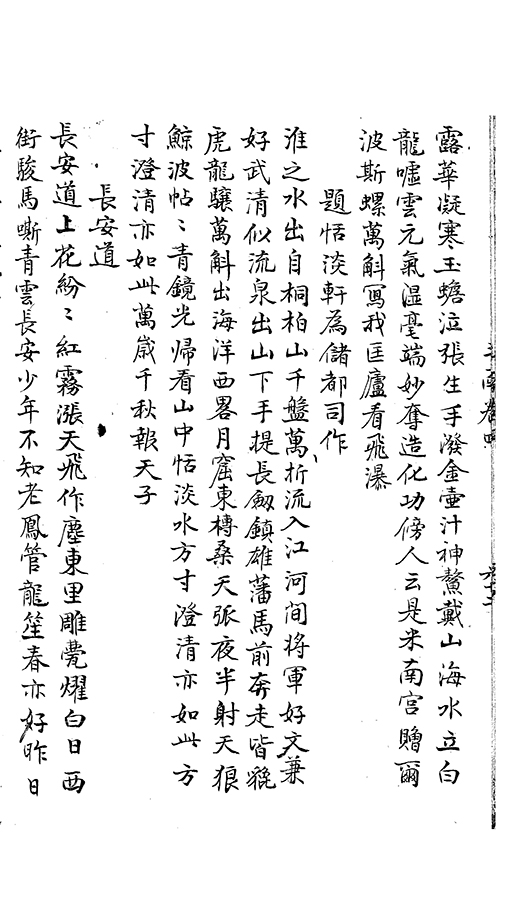 露華凝寒玉蟾泣張生手潑金壷汁神鰲戴山海水立白
龍噓雲元氣湿毫端妙奪造化功傍人云是米南宫贈爾
波斯螺萬斛冩我匡廬看飛瀑
題恬淡軒為儲都司作
淮之水出自桐柏山千盤萬折流入江河间将軍好文兼
好武清似流泉出山下手提長劔鎮雄藩馬前奔走皆貔
虎龍驤萬斛出海洋西畧月窟東榑桑天弧夜半射天狼
鯨波帖〻青鏡光帰看山中恬淡水方寸澄清亦如此方
寸澄清亦如此萬歳千秋報天子
長安道
長安道上花紛〻紅霧漲天飛作塵東里雕甍燿白日西
街駿馬嘶青雲長安少年不知老鳳管龍笙春亦好昨日